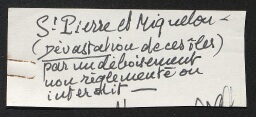 St Pierre et Miquelon -
(Dévastation de ces îles)
par un déboisement
non règlementé ou
interdit —